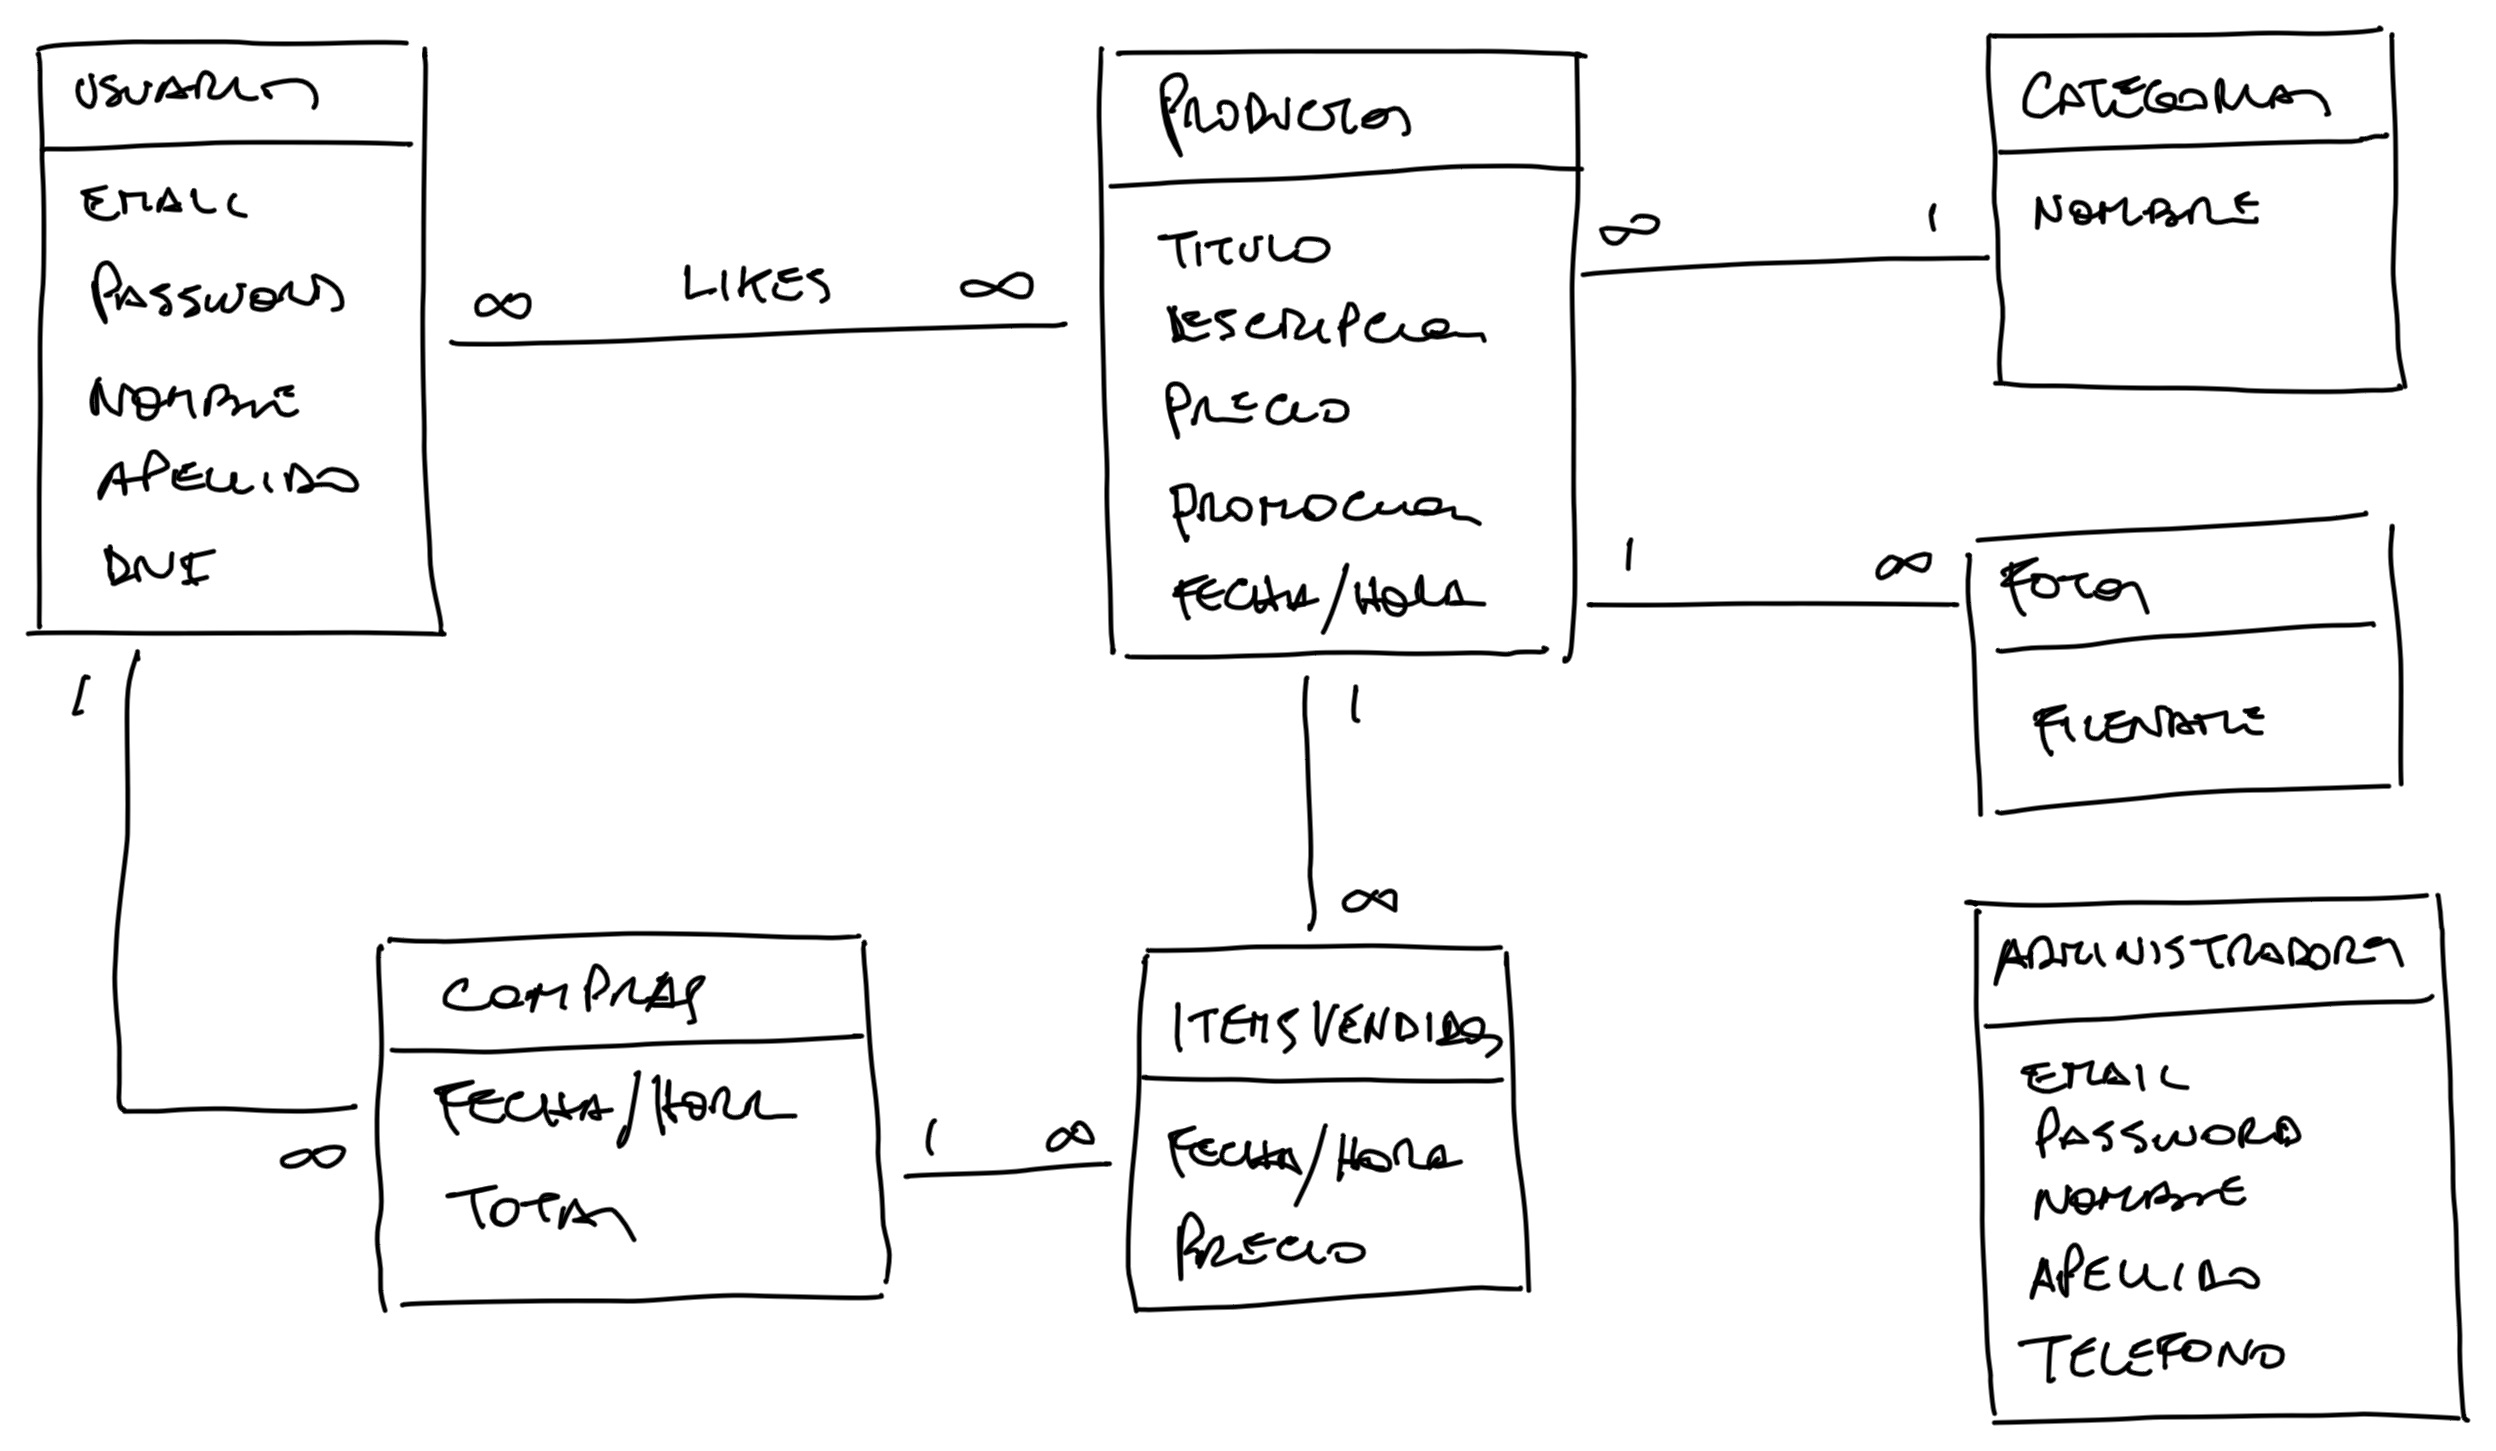 USUARIOS
EMAIL
PASSWORD
NOMBRE
APELLIDO
DNI
∞ LIKES ∞
PRODUCTOS
TITULO
DESCRIPCION
PRECIO
PROMOCION
FECHA/HORA
∞ 1
CATEGORIAS
NOMBRE
1 ∞
FOTOS
FILENAME
1
∞
1
∞
COMPRAS
FECHA/HORA
TOTAL
1 ∞
ITEMSVENDIDOS
FECHA/HORA
PRECIO
ADMINISTRADORES
EMAIL
PASSWORD
NOMBRE
APELLIDO
TELEFONO